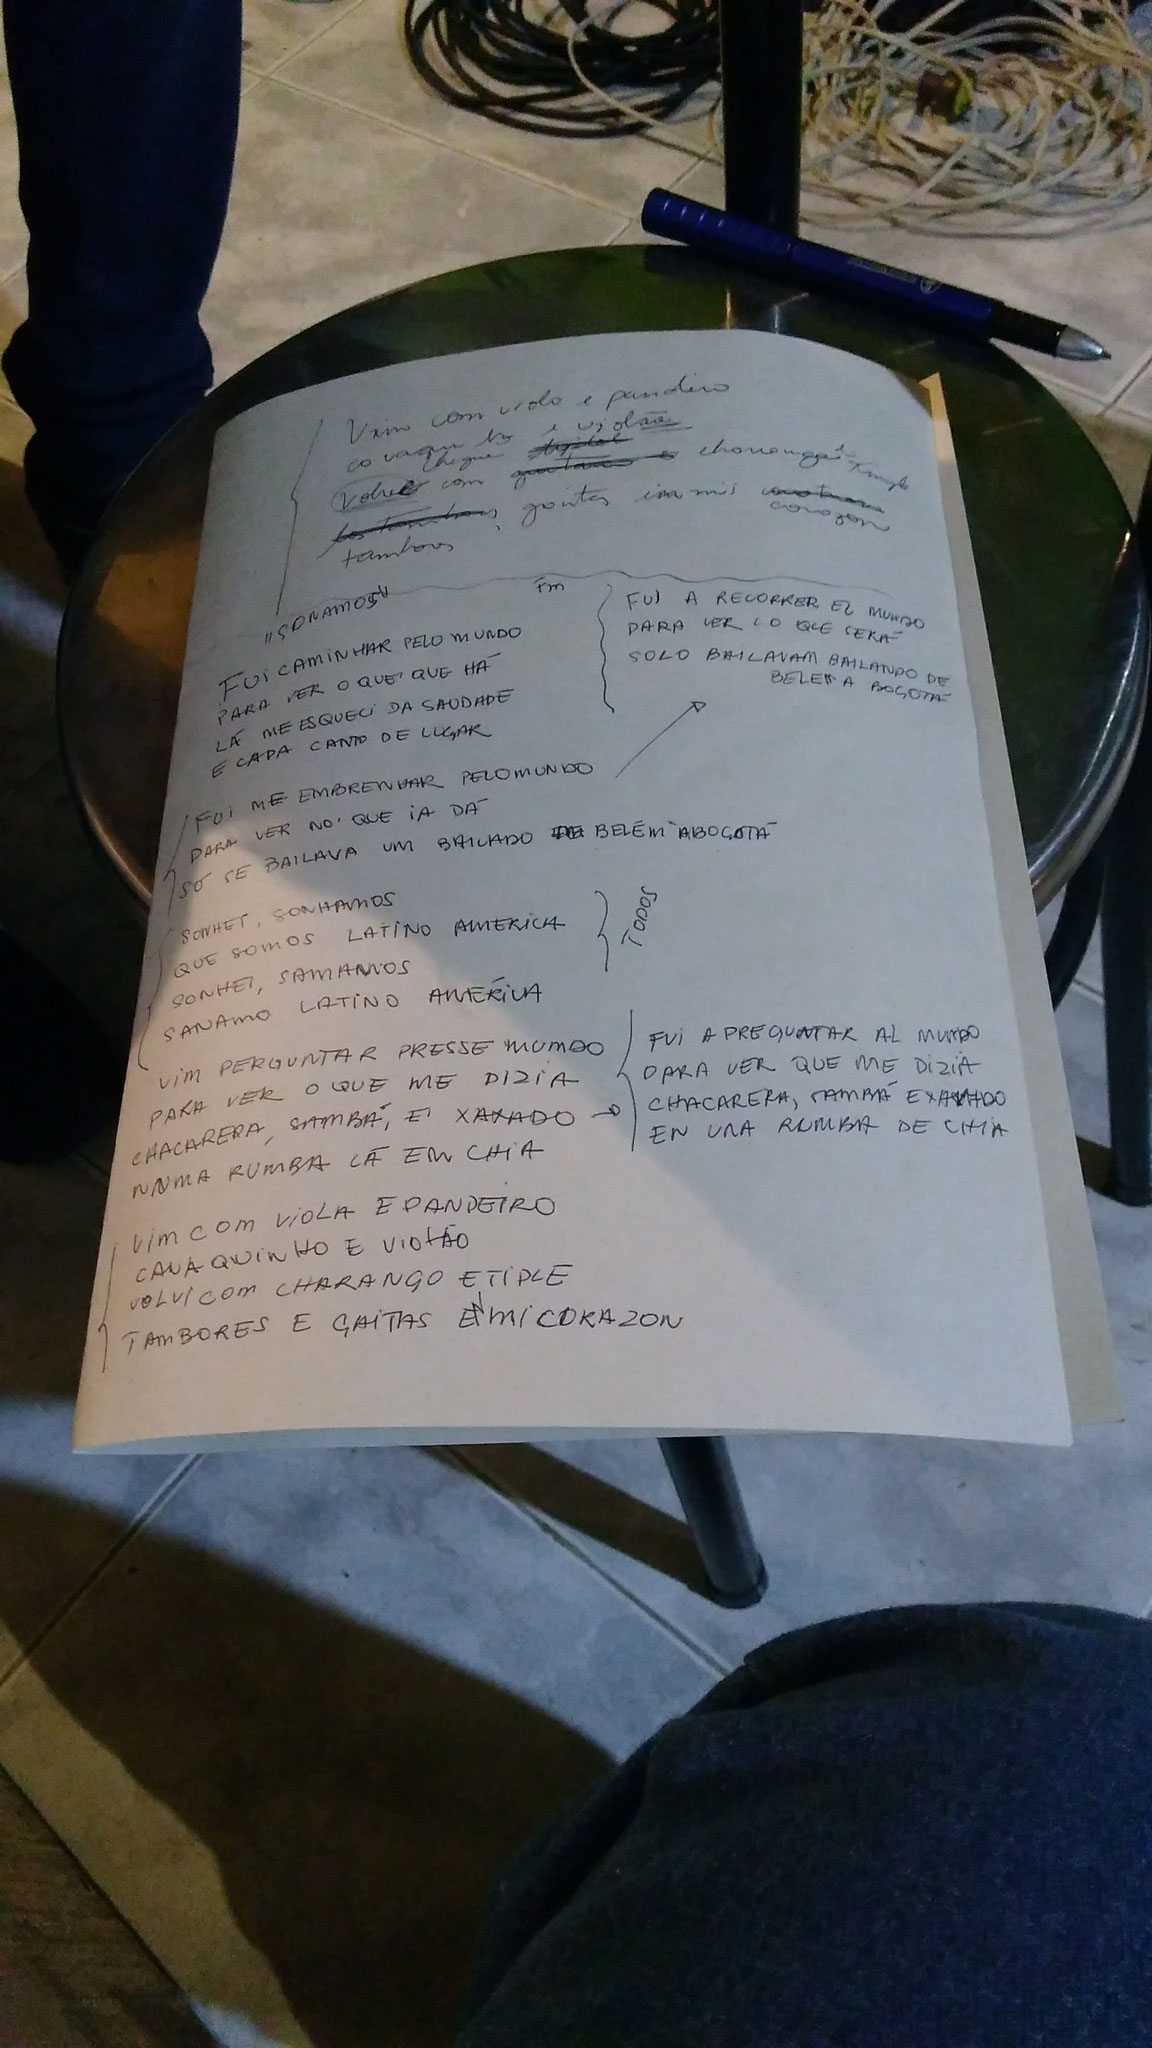 Vim com viola e pandeiro
cavaquinho e violão
chegue
Volvi com charango e tiple
tambores, gaitas en mi corazon
"SONAMOS" Fm
FUI CAMINHAR PELO MUNDO
PARA VER O QUE' QUE HÁ
LÁ ME ESQUECI DA SAUDADE
E CADA CANTO DE LUGAR
FUI ME EMBRENHAR PELO MUNDO
PARA VER NO' QUE IA DÁ
SÓ SE BAILAVA UM BAILADO DE BELÉM A BOGOTÁ
FUI A RECORRER EL MUNDO
PARA VER LO QUE SERÁ
SOLO BAILAVAM BAILANDO DE
BELEM A BOGOTÁ
SONHEI, SONHAMOS
QUE SOMOS LATINO AMERICA
SONHEI, SAMAMOS
SANAMO LATINO AMÉRICA
TODOS
VIM PERGUNTAR PRESSE MUMDO
PARA VER O QUE ME DIZIA
CHACARERA, SAMBÁ, E' XAXADO
NUMA RUMBA LÁ EM CHIA
FUI A PREGUNTAR AL MUNDO
PARA VER QUE ME DIZIA
CHACARERA, SAMBÁ E XAXADO
EN UNA RUMBA DE CHIA
VIM COM VIOLA E PANDEIRO
CAVAQUINHO E VIOLÃO
VOLVI COM CHARANGO E TIPLE
TAMBORES E GAITAS EN MI CORAZON